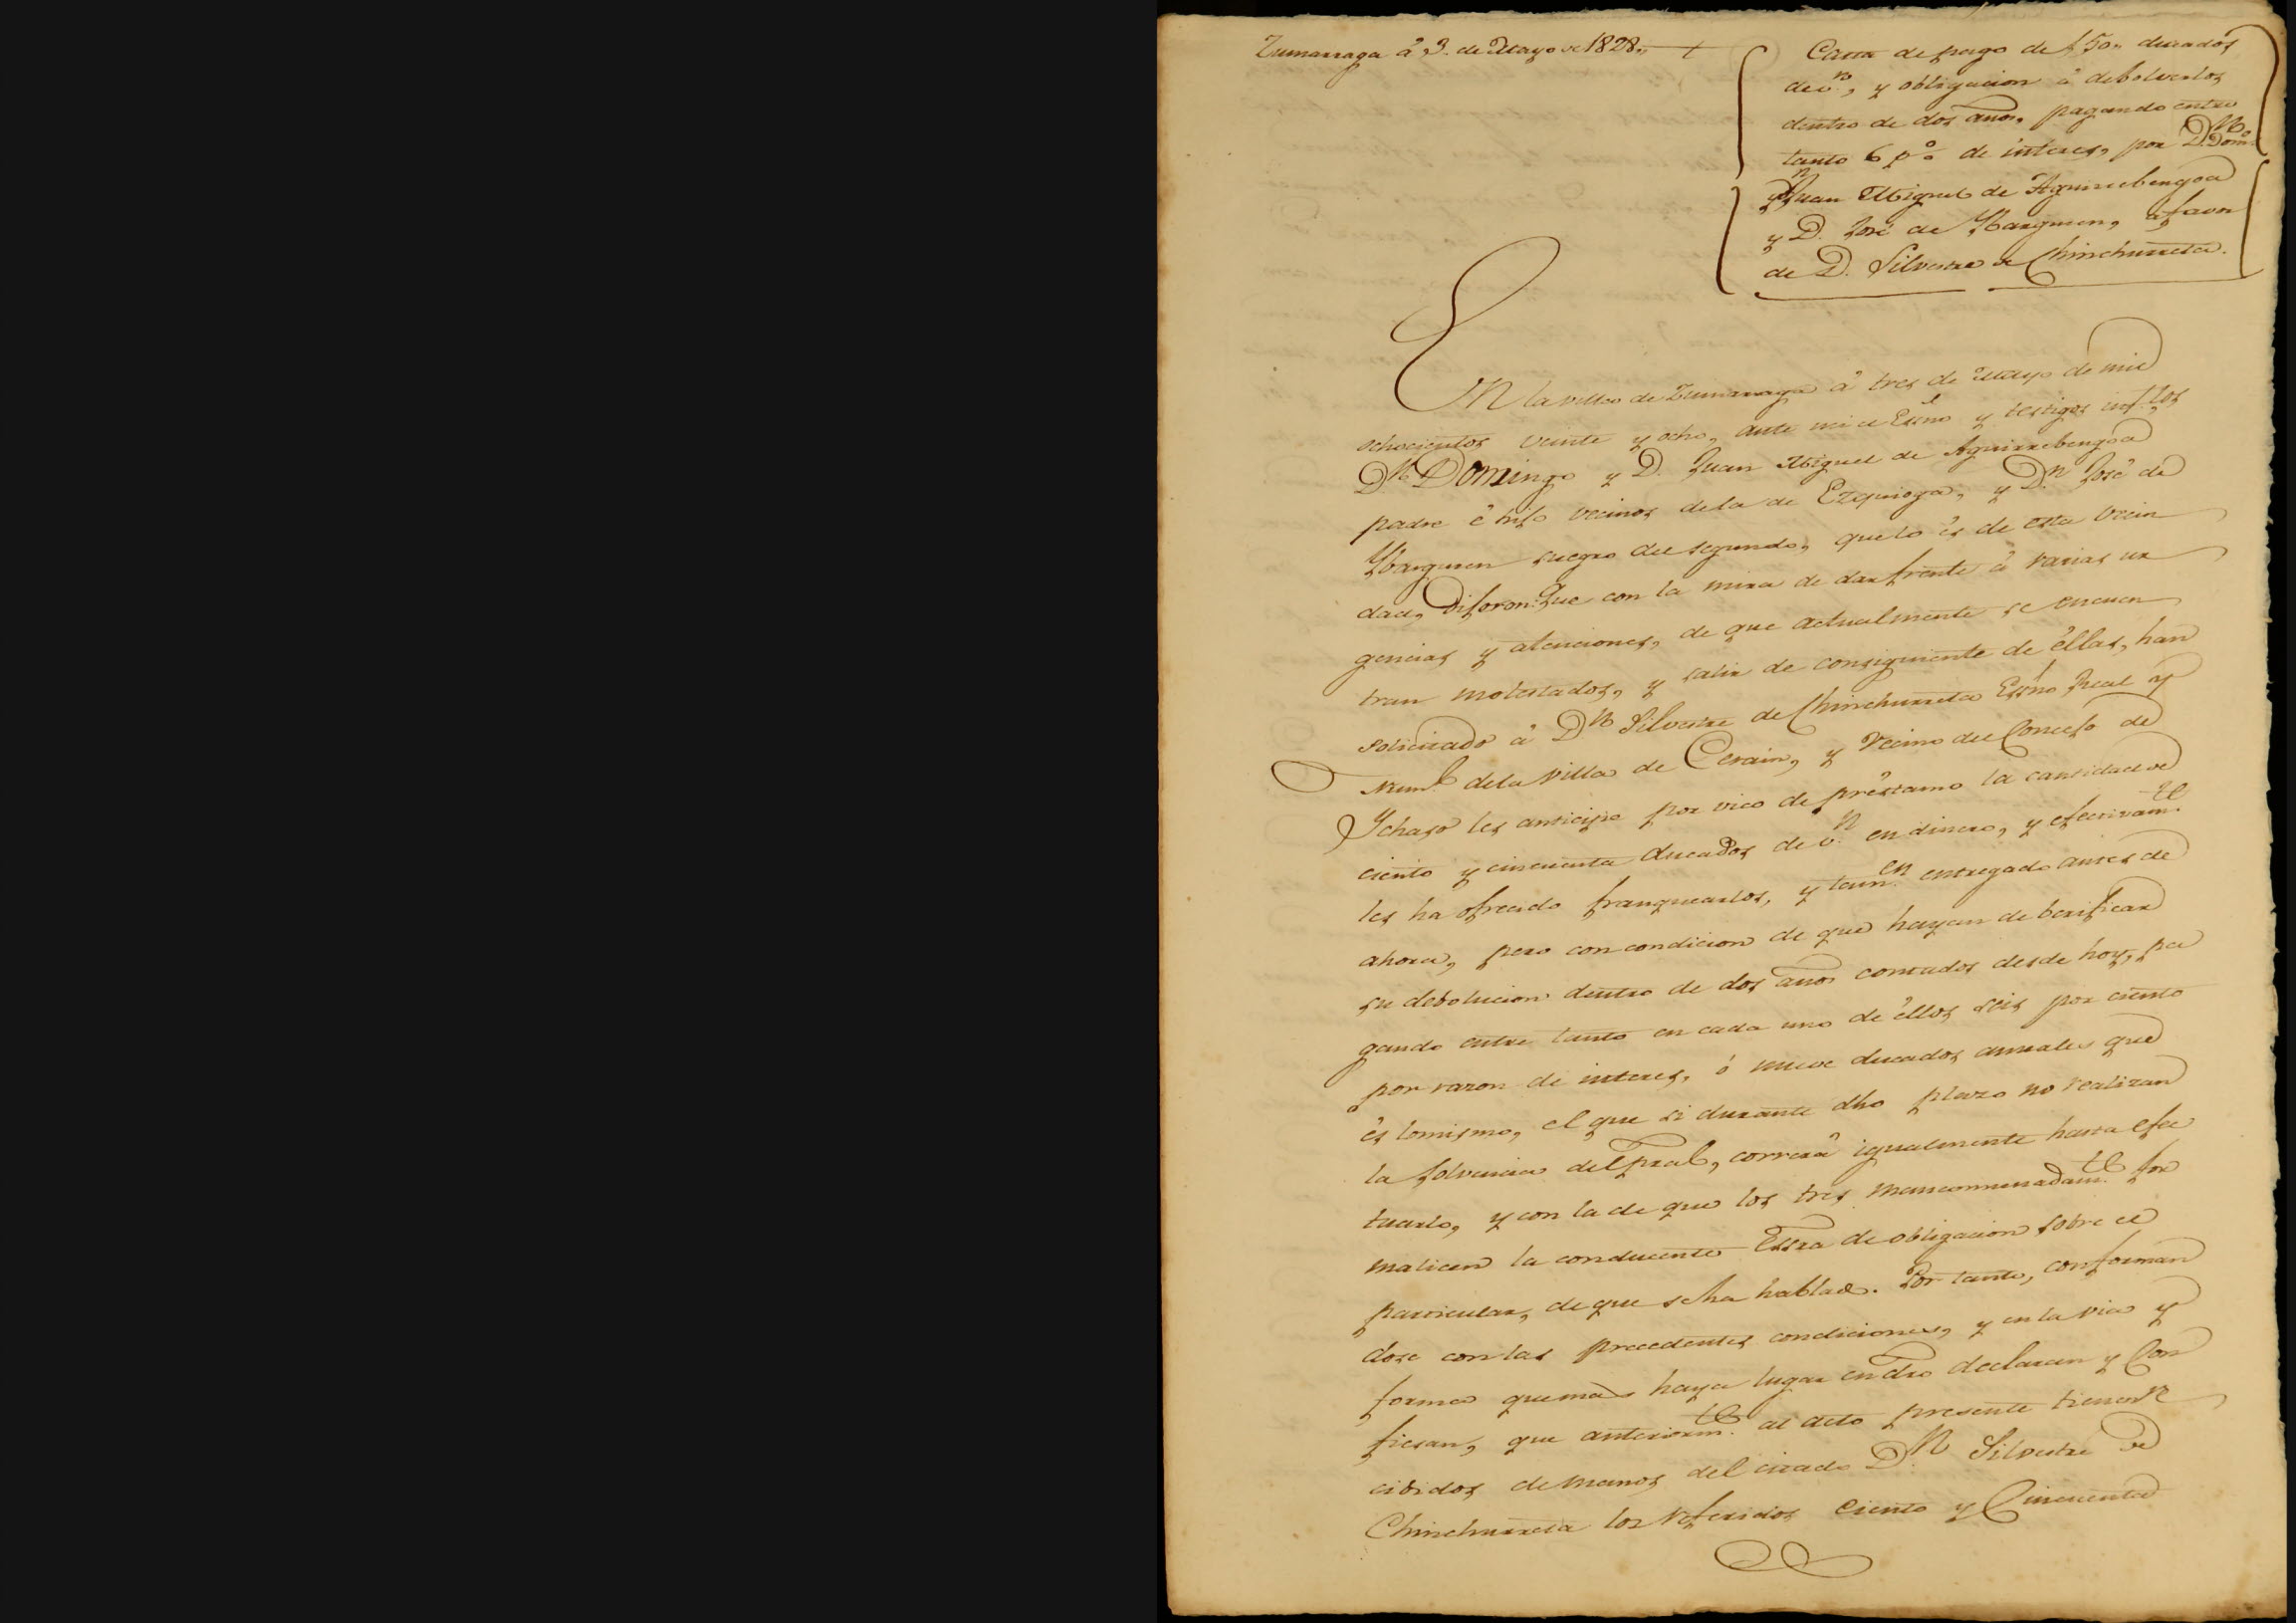 Zumarraga á 3. de Mayo de 1828.
Carta de pago de 150,, ducados
de v.n, y obligacion á debolverlos
dentro de dos años, pagando entre
tanto 6 p% de interes, por D.n Dom.o
y D.n Juan Miguel de Aguirrebengoa
y D. José de Ybarguren, á favor
de D. Silvestre de Chinchurreta.
En la villa de Zumarraga á tres de Mayo de mil
ochocientos veinte y ocho, ante mi el Esno y testigos inf.tos
D.n Domingo y D. Juan Miguel de Aguirrebengoa
padre é hijo vecinos dela de Ezquioga, y D.n José de
Ybarguren suegro del segundo, que lo és de esta vecin
dad, Dijeron: Que con la mira de dar frente á varias ur
gencias y atenciones, de que actualmente se encuen
tran molestados, y salir de consiguiente de éllas, han
solicitado á D.n Silvestre de Chinchurreta Esno Real y
Num.l dela Villa de Cerain, y Vecino del Concejo de
Ychaso les anticipe por vico de préstamo la cantidad de
ciento y cincuenta ducados de v.n en dinero, y efectivam.te
les ha ofrecido franquearlos, y tamn.en entregado antes de
ahora, pero con condicion de que hayan de berificar
su debolucion dentro de dos años contados desde hoy, pa
gando entre tanto en cada uno de éllos seis por ciento
por razon de interes, ó nueve ducados anuales que
és lomismo, el que si durante dho plazo no realizan
la solvencia del pral, correrá igualmente hasta efec
tuarlo, y con la de que los tres mancomunadam.te for
malicen la conducente Essra de obligacion sobre el
particular, de que se ha hablado. Por tanto, conforman
dose con las precedentes condiciones, y en la via y
forma que más haya lugar en dro declaran y Con
fiesan, que anteriorm.te al acto presente tienen re
cibidos de manos del citado D.n Silvestre de
Chinchurreta los referidos Ciento y Cincuenta